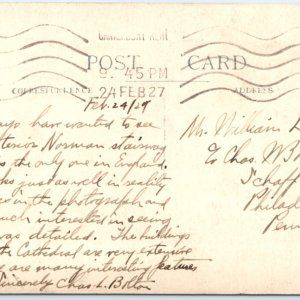 CANTERBURY KENT
POST CARD
9. 45 PM
CORRESPONDENCE ADDRESS
24 FEB 27
Feb. 24/27
have wanted to see
terior Norman stairway
is the only one in England.
ks just as well in reality
es in the photograph and
uch interested in seeing
was detailed. The buildings
the Cathedral are very extensive
are many interesting features
Sincerely Chas. L. B
Mr. William
c/o Chas
Schaff
Philade
Penn